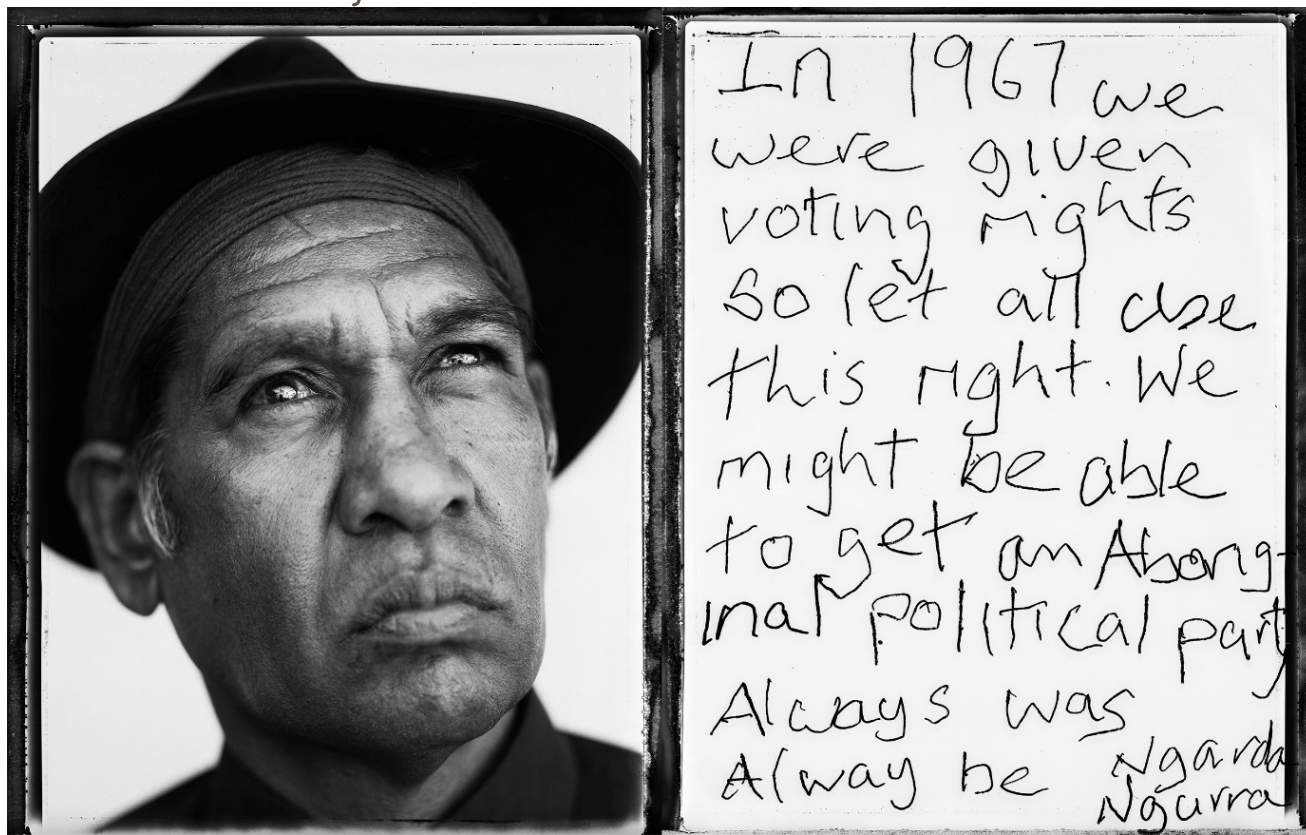 In 1967 we
were given
voting rights
So let all use
this right. We
might be able
to get an Aborig-
inal political party
Always was
Alway be Ngarda
Ngurra